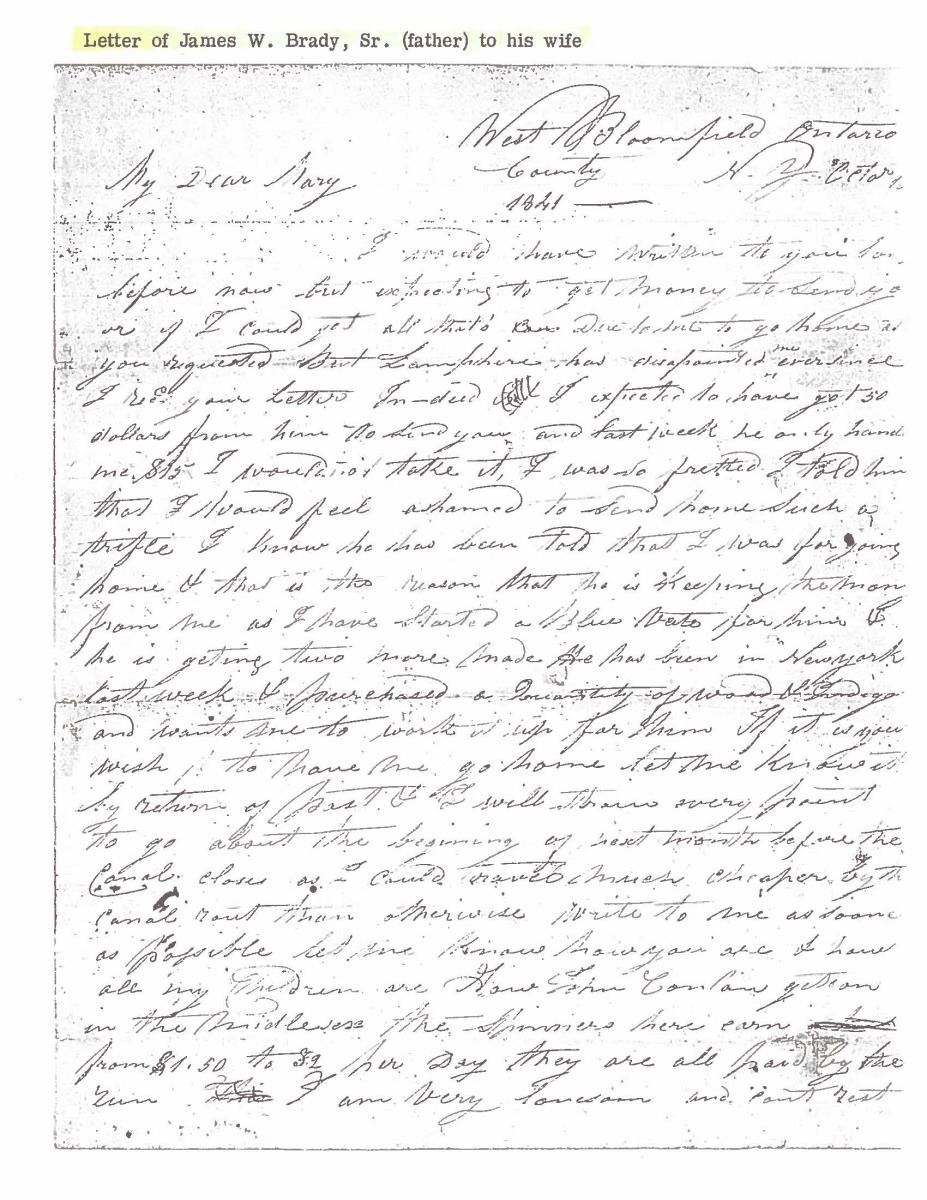 Letter of James W. Brady, Sr. (father) to his wife
West Bloomfield Ontario
County N. Y.
My Dear Mary
1841
I would have written to you
before now but expecting to get money to send yo
or if I could get all that's Due to me to go home as
you requested But Lamphire has disapointed me ever since
I recd your Letter In-deed I expected to have got 50
dollars from him to send you and last week he only hand
me $15 I would not take it, I was so fretted I told him
that I Would feel ashamed to send home such a
trifle I know he has been Told that I was for going
home & that is the reason that he is Keeping the mon
from me as I have Started a Blue Vate for him &
he is geting two more made He has been in Newyork
last week & purchased a Quantity of woad & Indigo
and wants me to work it up for him If it is you
wish to have me go home let me Know it
by return of Post & I will strain every point
to go about the begining of next month before the
Canal closes as I could travel much cheaper by th
Canal rout than otherwise write to me as soone
as Possible let me Know how you are & how
all my Children are How John Conlan gets on
in the Middlesex the Spinners here earn
from $1.50 to $2 per Day they are all paid by the
run I am Very lonesom and cant rest